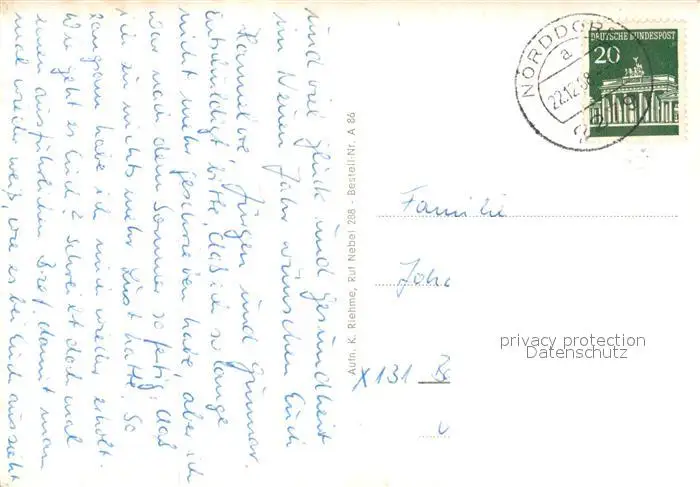 und viel Glück und Gesundheit
im Neuen Jahr wünschen Euch
Hannelore, Jürgen und Gunnar.
Entschuldigt bitte, daß ich so lange
nicht mehr geschrieben habe, aber ich
war nach dem Sommer so fertig, daß
ich zu nichts mehr Lust hatte. So
langsam habe ich mich wieder erholt.
Wie geht es Euch? Schreibt doch mal
einen ausführlichen Brief, damit man
mal wieder weiß, wie es bei Euch aussieht
Aufn. K. Riehme, Ruf Nebel 288 - Bestell-Nr. A 86
NORDDORF
a
22.12.68
DEUTSCHE BUNDESPOST
20
Familie
Joha
privacy protection
Datenschutz
X 131